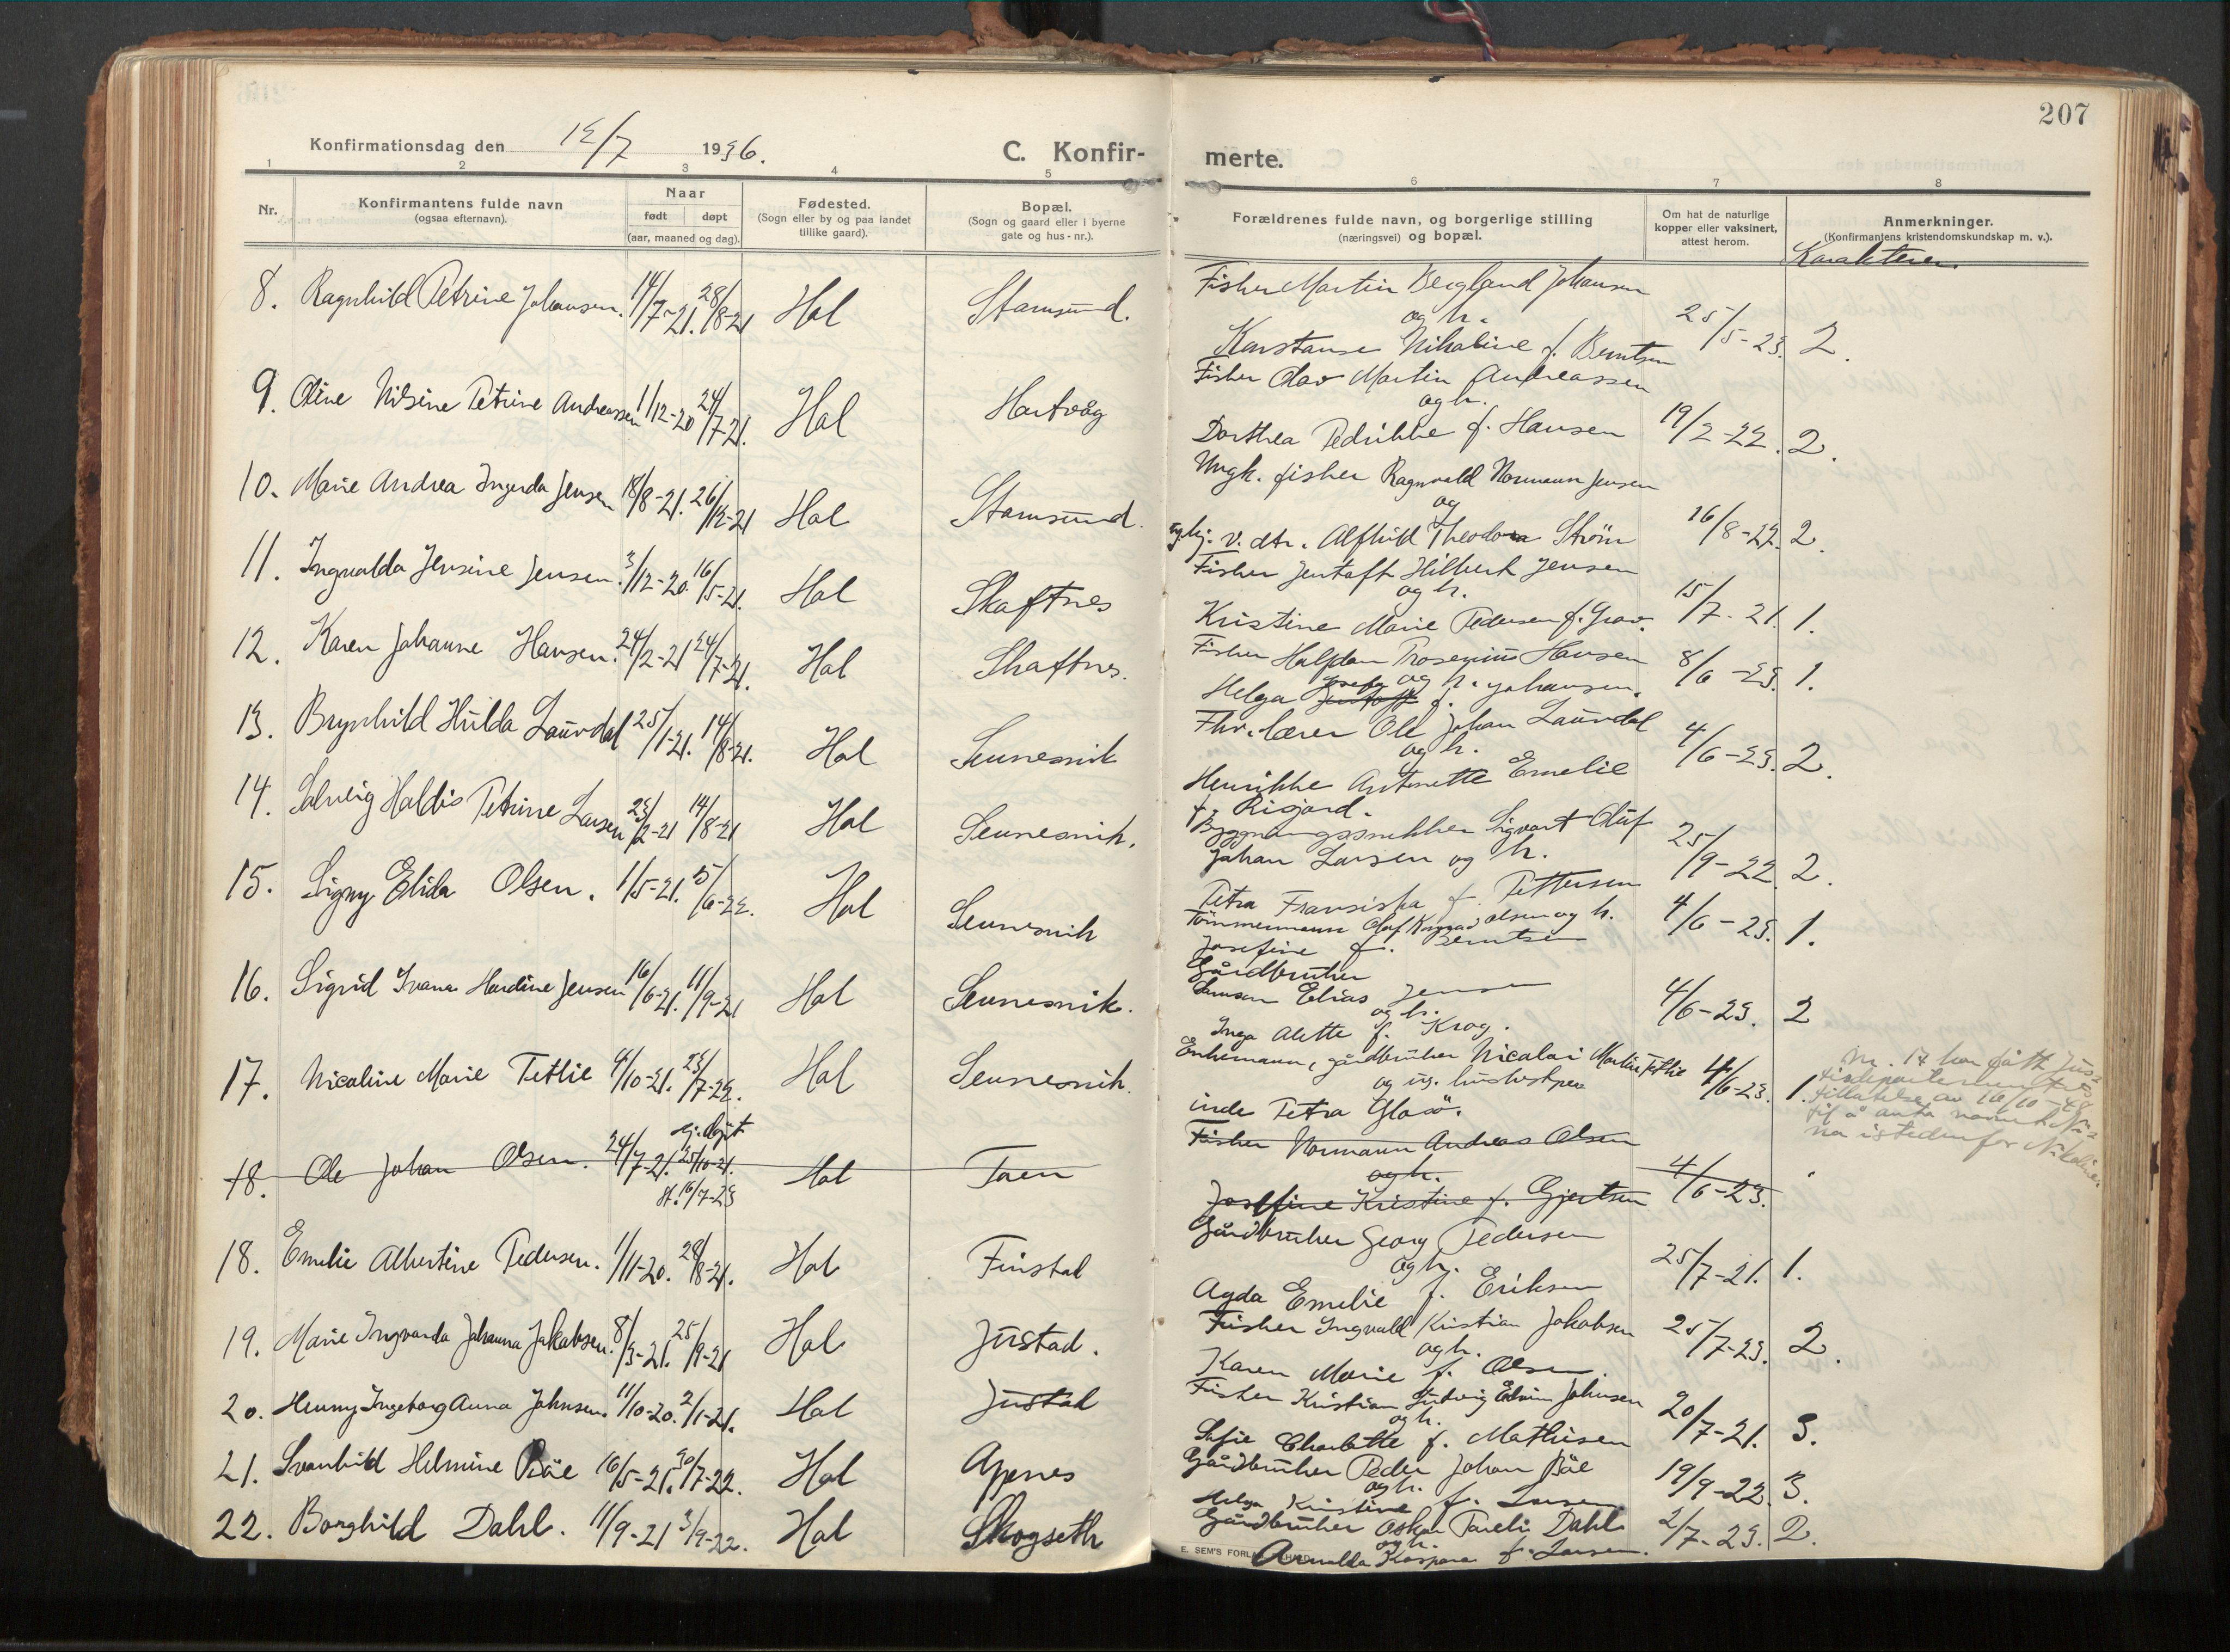 207
Konfirmationsdag den 12/7 1936.
C. Konfir-
merte.
1 2 3 4 5 6 7 8
Nr.
Konfirmantens fulde navn
(ogsaa efternavn).
Naar
født døpt
(aar, maaned og dag).
Fødested.
(Sogn eller by og paa landet
tillike gaard).
Bopæl.
(Sogn og gaard eller i byerne
gate og hus-nr.).
Forældrenes fulde navn, og borgerlige stilling
(næringsvei) og bopæl.
Om hat de naturlige
kopper eller vaksinert,
attest herom.
Anmerkninger.
(Konfirmantens kristendomskundskap m. v.).
Karakterer.
8. Ragnhild Petrine Johansen. 14/7-21. 28/8-21 Hol Stamsund.
Fisker Martin Bergland Johansen
og h.
Konstanse Nikoline f. Berntsen
25/5-23. 2.
9. Oline Nilsine Petrine Andreassen 1/12-20 24/7-21. Hol Hartvåg
Fisker Olav Martin Andreassen
og h.
Dorthea Pedrikke f. Hansen 19/2-22. 2.
10. Marie Andrea Ingerda Jensen 18/8-21. 26/12-21 Hol Stamsund.
Ungk. fisker Ragnvald Normann Jensen
og
v. dtr. Alfhild Theodora Strøm 16/8-22. 2.
11. Ingvalda Jensine Jensen. 3/12-20. 16/5-21. Hol Skaftnes
Fisker Jentoft Hilbert Jensen
og h.
Kristine Marie Pedersen f. Grav. 15/7-21. 1.
12. Karen Johanne Hansen. 24/2-21 24/7-21. Hol Skaftnes.
Fisker Halfdan Hansen
og h.
Helga Josefa f. Johansen. 8/6-23. 1.
13. Brynhild Hulda Laurdal 25/1-21. 14/8-21. Hol Sennesvik
Fhv. lærer Ole Johan Laurdal
og h.
Henrikke Antonette Emelie
f. Risjord.
4/6-23. 2.
14. Solveig Haldis Petrine Larsen 23/2-21 14/8-21 Hol Sennesvik.
Bygningssnekker Sigvart Oluf
Johan Larsen og h.
Petra Fransiska f. Pettersen
25/9-22. 2.
15. Signy Elida Olsen. 1/5-21. 5/6-22. Hol Sennesvik
Tømmermann Olaf Konrad Olsen og h.
Josefine f. Berntsen
4/6-23. 1.
16. Sigrid Ivana Hardine Jensen 16/6-21. 11/9-21 Hol Sennesvik.
Gårdbruker
Samson Elias Jensen
og h.
Inga Alette f. Krog.
4/6-23. 2
17. Nicoline Marie Tetlie 4/10-21. 23/7-22. Hol Sennesvik.
Enkemann, gårdbruker Nicolai Martin Tetlie
og ug. husbestyrer
inde Petra Glasø.
4/6-23. 1.
Nr. 17 har fått Jus-
tisdepartementets
tillatelse av 16/10-48
til å anta navnet Ni-
na istedenfor Nikoline.
18. Ole Johan Olsen. 24/7-21. 25/10-21. Hol Toen
hj.døpt
st. 16/7-23
Fisker Normann Andreas Olsen
og h.
Josefine Kristine f. Gjertsen
4/6-23.
18. Emelie Albertine Pedersen. 1/11-20. 28/8-21. Hol Finstad
Gårdbruker Georg Pedersen
og h.
Agda Emelie f. Eriksen
25/7-21. 1.
19. Marie Ingvarda Johanna Jakobsen. 8/3-21. 25/9-21 Hol Justad.
Fisker Ingvald Kristian Jakobsen
og h.
Karen Marie f. Olsen.
25/7-23. 2.
20. Henny Ingeborg Anna Johnsen. 11/10-20. 2/1-21. Hol Justad
Fisker Kristian Ludvig Edvin Johnsen
og h.
Sofie Charlotte f. Mathisen
20/7-21. 3.
21. Svanhild Helmine Bøe 16/5-21. 30/7-22. Hol Apnes
Gårdbruker Peder Johan Bøe
og h.
Helga Kristine f. Larsen.
19/9-22. 3.
22. Borghild Dahl. 11/9-21 3/9-22. Hol Skogseth
Gårdbruker Oskar Pareli Dahl
og h.
Arnolda Kaspara f. Larsen.
2/7-23. 2.
E. SEM'S FORLAG